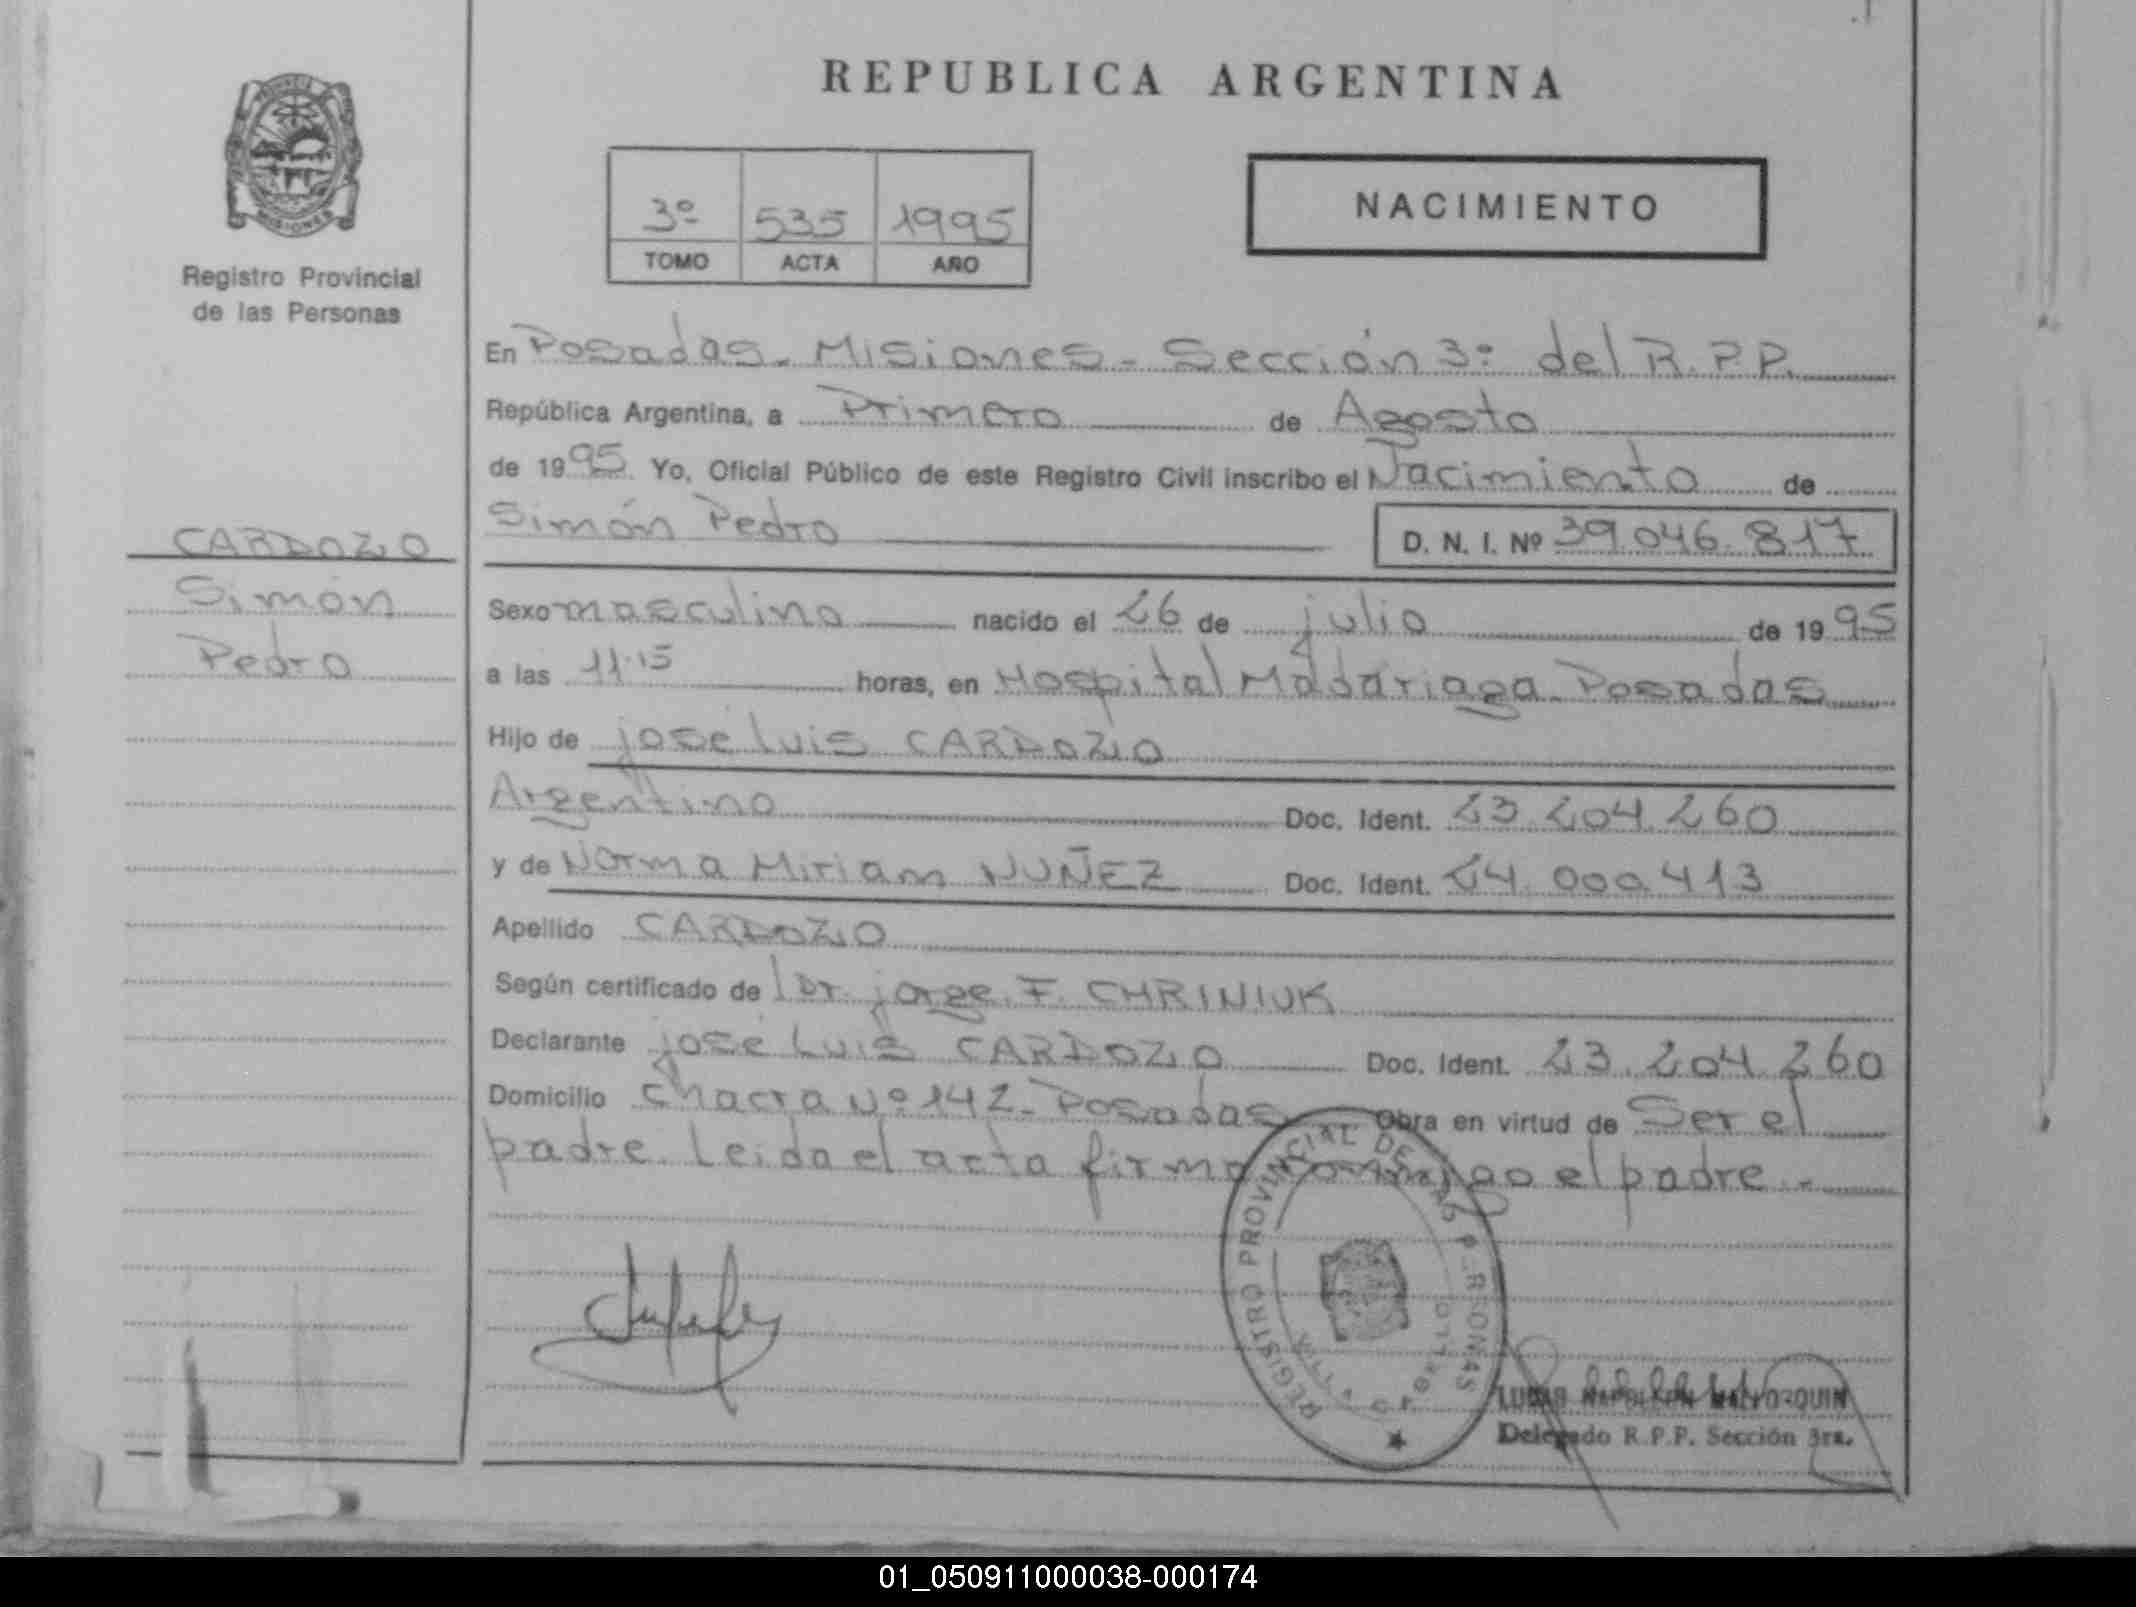 REPUBLICA ARGENTINA
Registro Provincial
de las Personas
3º 535 1995
TOMO ACTA AÑO
NACIMIENTO
En Posadas - Misiones - Sección 3º del R.P.P.
República Argentina, a Primero de Agosto
de 1995. Yo, Oficial Público de este Registro Civil inscribo el Nacimiento de
Simón Pedro D. N. I. Nº 39.046.817
CARDOZO
Simón
Pedro
Sexo masculino nacido el 26 de julio de 1995
a las 11.15 horas, en Hospital Madariaga - Posadas
Hijo de josé Luis CARDOZO
Argentino Doc. Ident. 23.204.260
y de Norma Miriam NUÑEZ Doc. Ident. 24.000.413
Apellido CARDOZO
Según certificado de l Dr. jorge F. CHRINIUK
Declarante josé Luis CARDOZO Doc. Ident. 23.204.260
Domicilio Chacra Nº 142 - Posadas Obra en virtud de Ser el
padre. Leida el acta firma conmigo el padre.-
REGISTRO PROVINCIAL DE LAS PERSONAS
VILLA
LUCAS NAPOLEON
Delegado R.P.P. Sección 3ra.
MISIONES
01_050911000038-000174